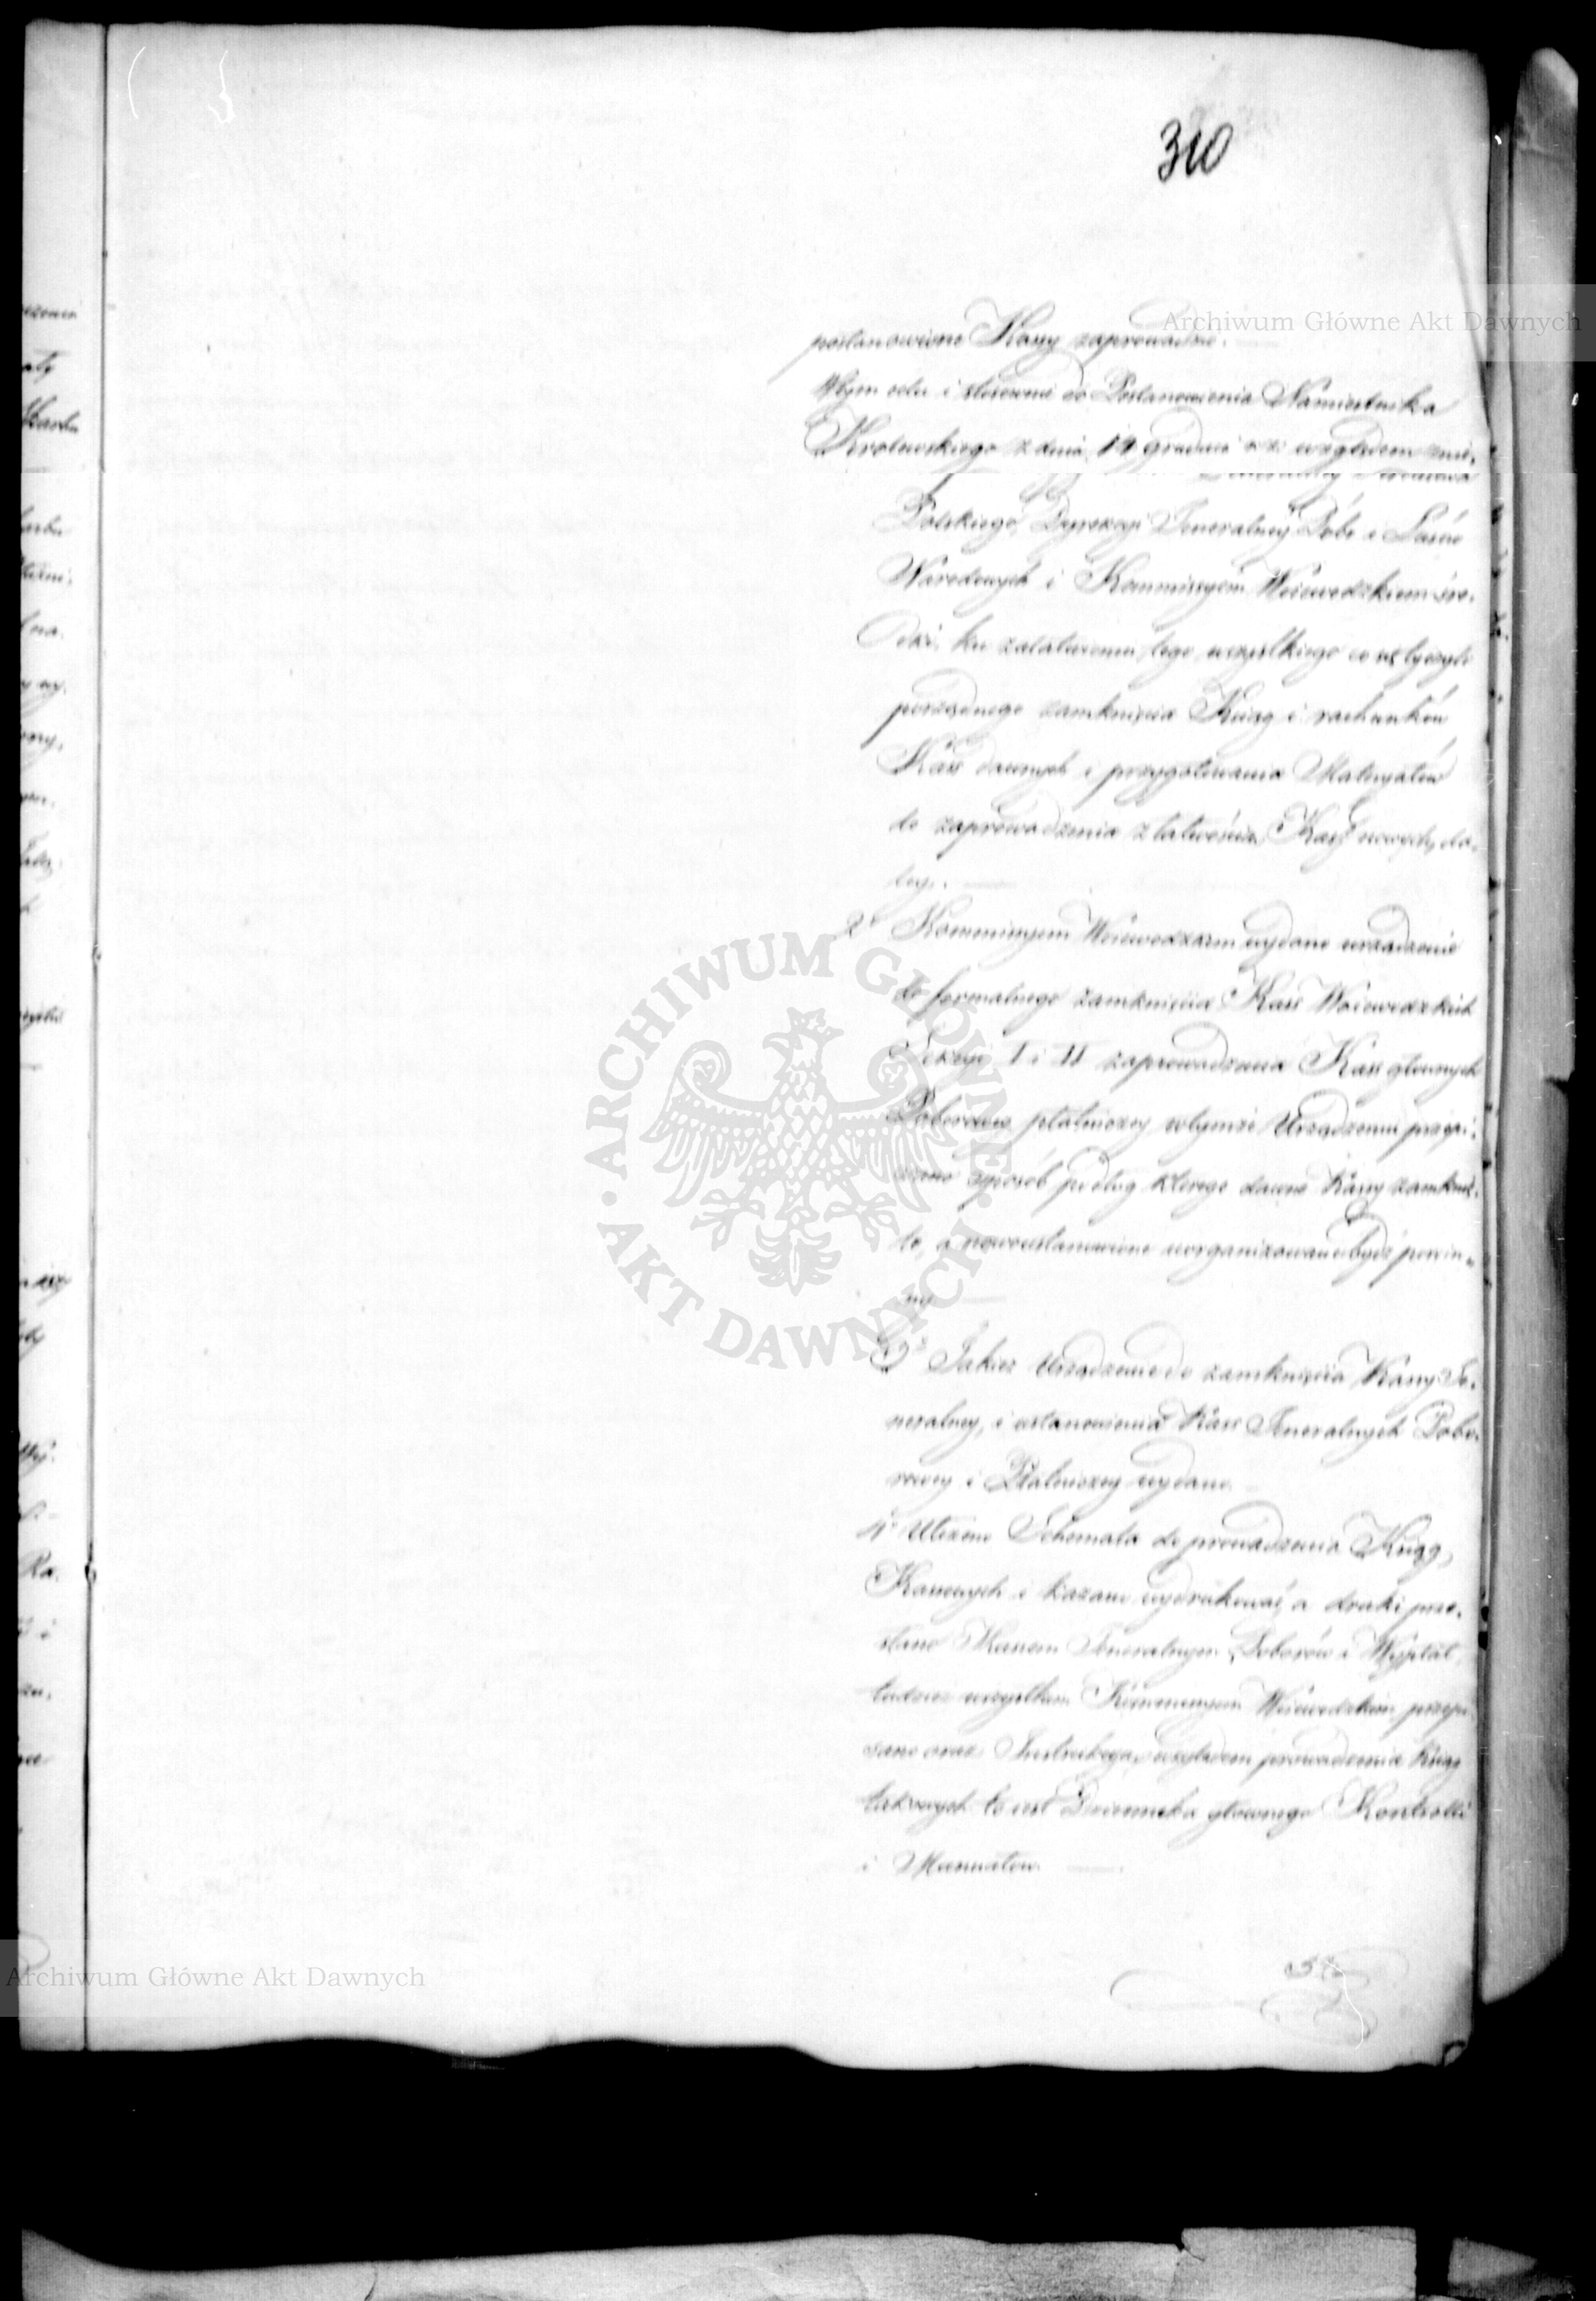 310
Archiwum Główne Akt Dawnych
postanowione Kassy zaprowadzić.
Wtym celu i stosownie do Postanowienia Namiestnika
Krolewskiego z dnia 14 Grudnia względem zmi,
Polskiego, Dyrekcyi Jeneralney Dóbr i Lasów
Narodowych i Kommissyom Woiewodzkiem śro,
dki, ku załatwieniu tego wszystkiego co
porządnego zamknięcia Ksiąg i rachunków
Kass dawnych i przygotowania Materyałów
do zaprowadzenia z łatwością Kass nowych, do,
2° Kommissyom Woiewodzkim wydano urządzenie
do formalnego zamknięcia Kass Woiewodzkich
Sekcyi I i II zaprowadzenia Kass głownych
Poborowey płatniczey wtymże Urządzeniu przepi,
sano sposób podług ktorego dawne Kassy zamknię,
te, a nowoustanowione uorganizowane bydź powin,
ny
3° Takież Urządzenie do zamknięcia Kassy Je,
neralney, i ustanowienia Kass Jeneralnych Pobo,
rowey i Płatniczey wydano
4° Ułożono Schemata do prowadzenia Ksiąg
Kassowych i kazano wydrukować, a druki prze,
słano Kassom Jeneralnym Poborów i Wypłat
tudzież wszystkim Kommissyom Woiewodzkim przepi
sano oraz Instrukcyą, względem prowadzenia Ksiąg
takowych to iest Dziennika głownego Kontrolli
i Manuałow.
ARCHIWUM GŁÓWNE • AKT DAWNYCH •
Archiwum Główne Akt Dawnych